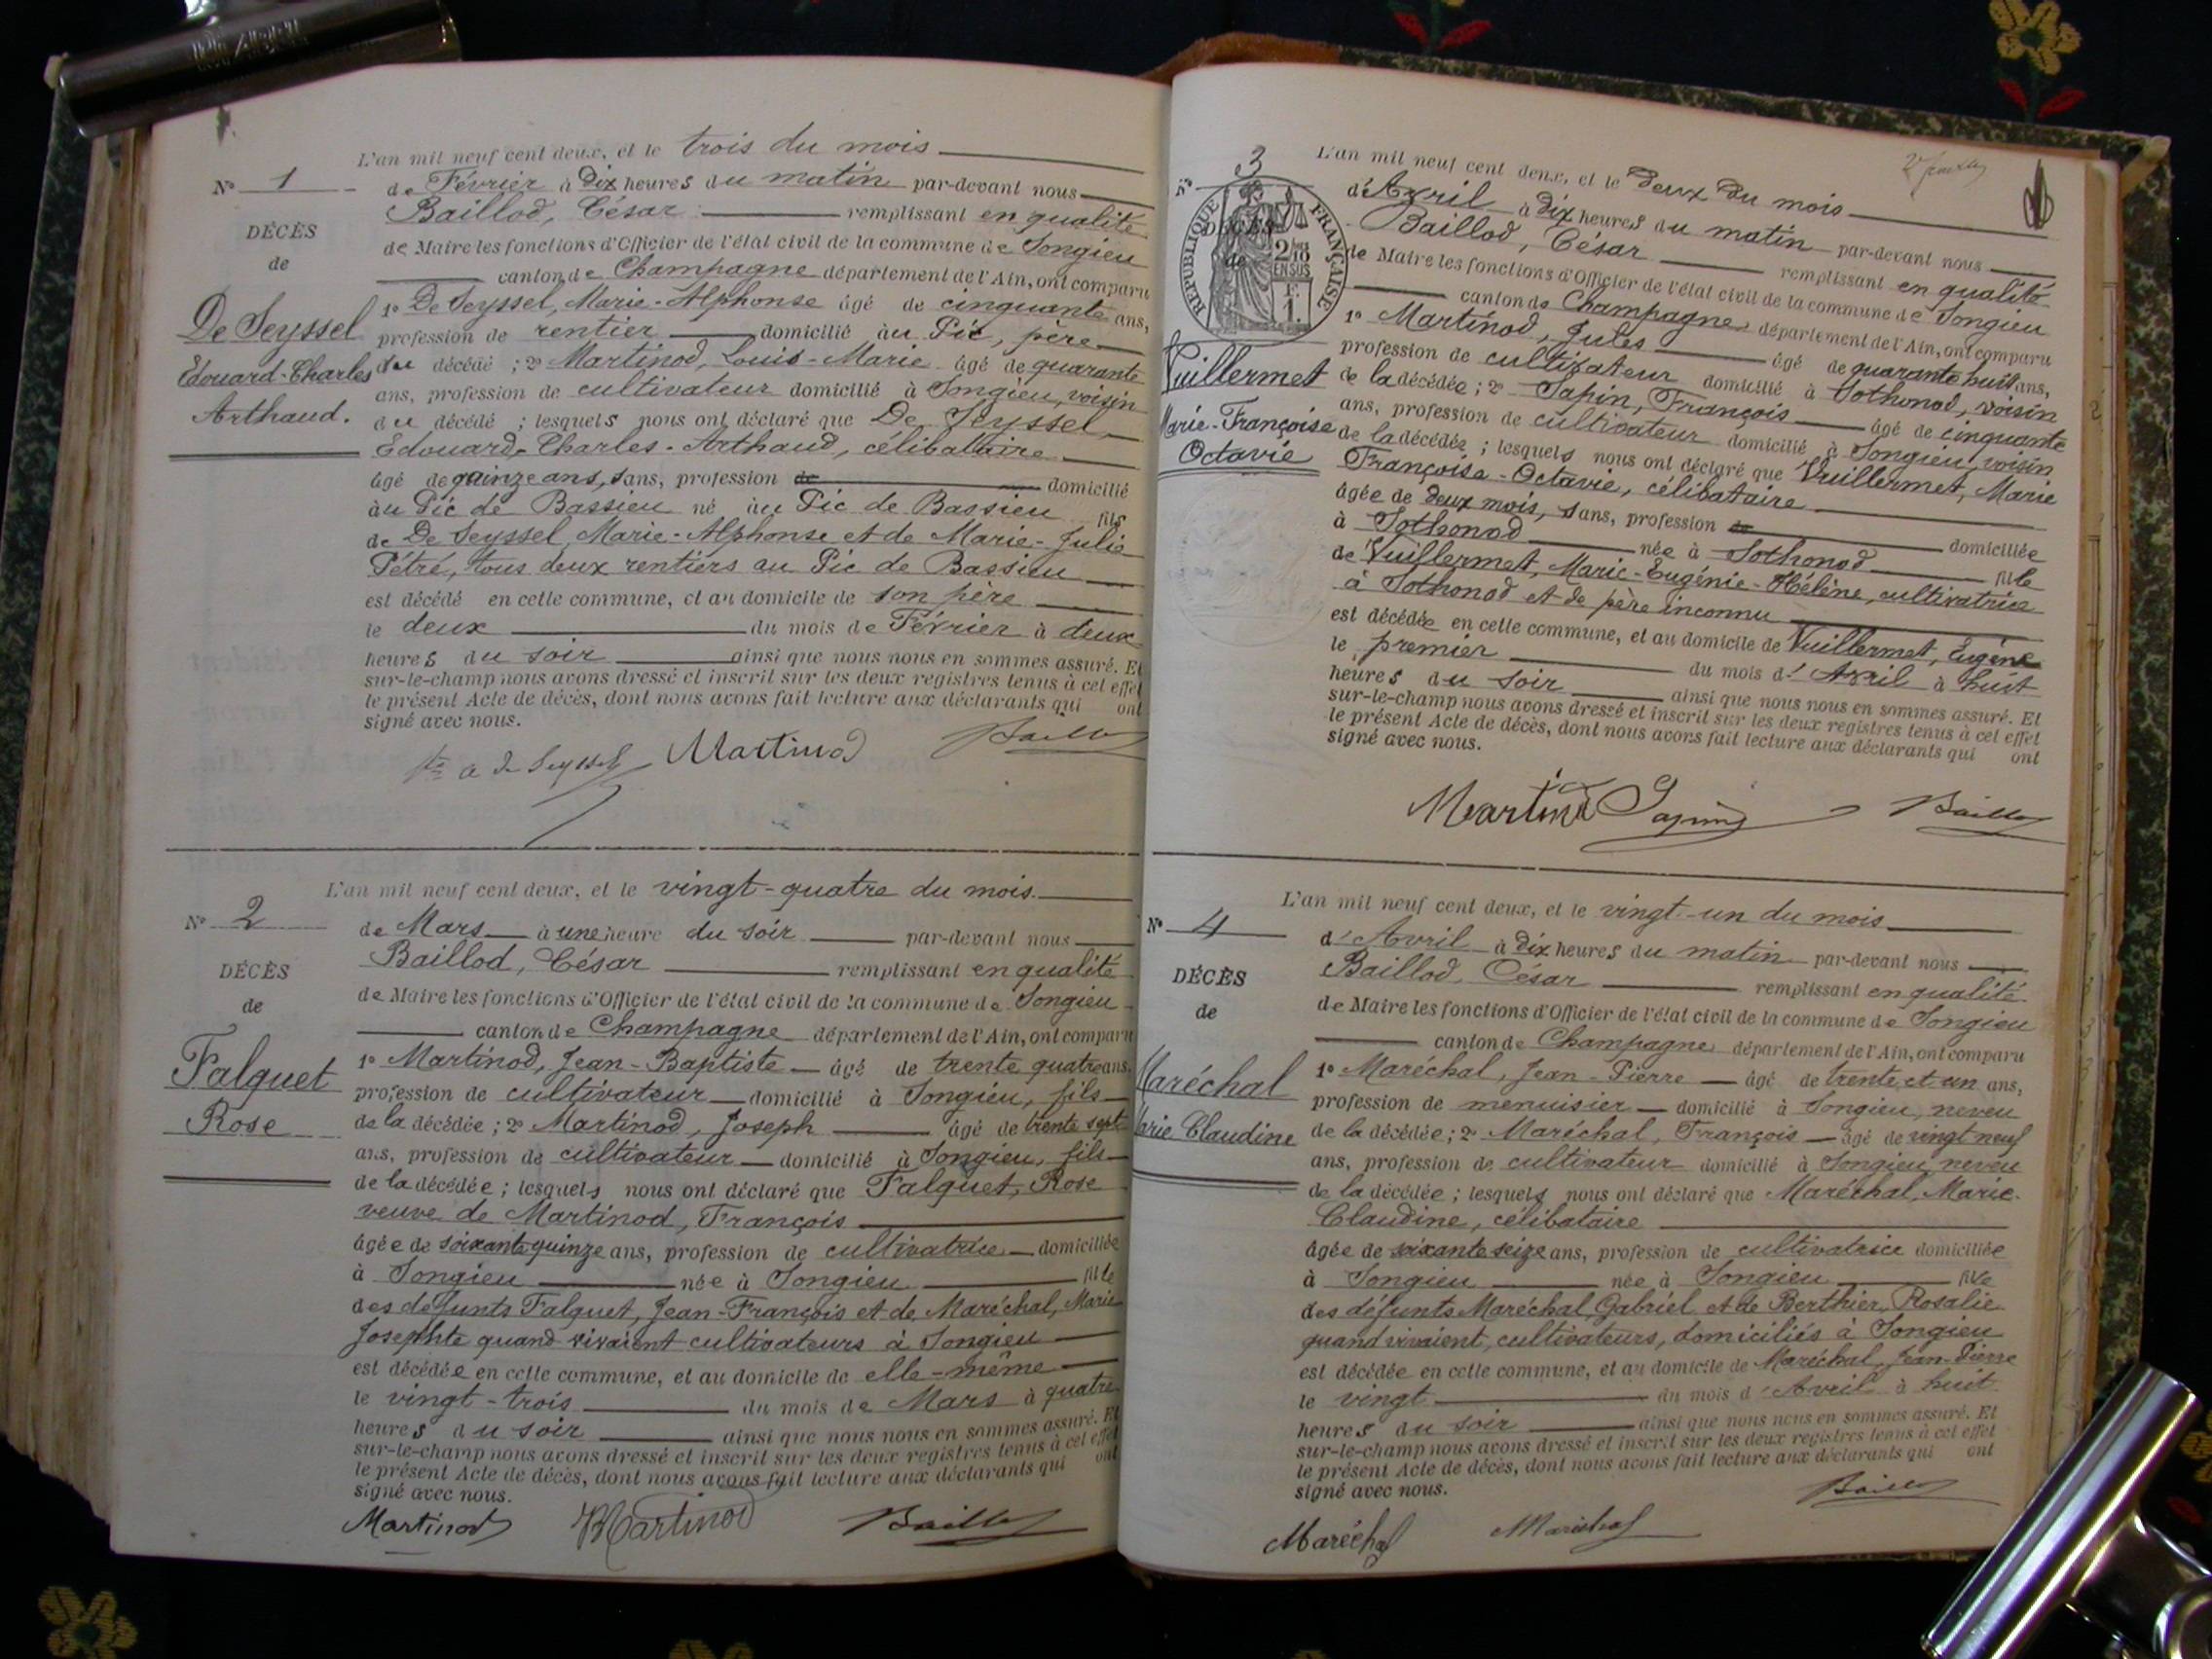 L'an mil neuf cent deux, et le trois du mois
N° 1
de Février à Dix heures du matin par-devant nous
Baillod, César remplissant en qualité
DÉCÈS
de Maire les fonctions d'Officier de l'état civil de la commune de Songieu
de
canton de Champagne département de l'Ain, ont comparu
1° De Seyssel, Marie-Alphonse âgé de cinquante ans,
De Seyssel
profession de rentier domicilié au Pic, père
Edouard-Charles
du décédé ; 2° Martinod, Louis-Marie âgé de quarante
ans, profession de cultivateur domicilié à Songieu, voisin
Arthaud.
du décédé ; lesquels nous ont déclaré que De Seyssel
Edouard-Charles-Arthaud, célibataire
âgé de quinze ans, sans, profession de domicilié
au Pic de Bassieu né au Pic de Bassieu fils
de De Seyssel, Marie-Alphonse et de Marie-Julie
Pétré, tous deux rentiers au Pic de Bassieu
est décédé en cette commune, et au domicile de son père
le deux du mois de Février à deux
heures du soir ainsi que nous nous en sommes assuré. Et
sur-le-champ nous avons dressé et inscrit sur les deux registres tenus à cet effet
le présent Acte de décès, dont nous avons fait lecture aux déclarants qui ont
signé avec nous.
a de Seyssel Martinod Baillod
L'an mil neuf cent deux, et le vingt-quatre du mois
N° 2
de Mars à une heure du soir par-devant nous
Baillod, César remplissant en qualité
DÉCÈS
de Maire les fonctions d'Officier de l'état civil de la commune de Songieu
de
canton de Champagne département de l'Ain, ont comparu
1° Martinod, Jean-Baptiste âgé de trente quatre ans,
Falquet
profession de cultivateur domicilié à Songieu, fils
Rose
de la décédée ; 2° Martinod, Joseph âgé de trente sept
ans, profession de cultivateur domicilié à Songieu, fils
de la décédée ; lesquels nous ont déclaré que Falquet, Rose
veuve de Martinod, François
âgée de soixante quinze ans, profession de cultivatrice domiciliée
à Songieu née à Songieu fille
des défunts Falquet, Jean-François et de Maréchal, Marie
Josephte quand vivaient cultivateurs à Songieu
est décédée en cette commune, et au domicile de elle-même
le vingt-trois du mois de Mars à quatre
heures du soir ainsi que nous nous en sommes assuré. Et
sur-le-champ nous avons dressé et inscrit sur les deux registres tenus à cet effet
le présent Acte de décès, dont nous avons fait lecture aux déclarants qui ont
signé avec nous.
Martinod Martinod Baillod
L'an mil neuf cent deux, et le deux du mois
N° 3
d'Avril à dix heures du matin par-devant nous
Baillod, César remplissant en qualité
RÉPUBLIQUE FRANÇAISE
2/10 EN SUS
F. 1.
DÉCÈS
de
de Maire les fonctions d'Officier de l'état civil de la commune de Songieu
canton de Champagne département de l'Ain, ont comparu
1° Martinod, Jules âgé de quarante huit ans,
Vuillermet
profession de cultivateur domicilié à Sothonod, voisin
de la décédée ; 2° Sapin, François âgé de cinquante
Marie-Françoise
ans, profession de cultivateur domicilié à Songieu, voisin
Octavie
de la décédée ; lesquels nous ont déclaré que Vuillermet, Marie
Françoise-Octavie, célibataire
âgée de deux mois, sans, profession de domiciliée
à Sothonod née à Sothonod fille
de Vuillermet, Marie-Eugénie-Hélène, cultivatrice
à Sothonod et de père inconnu
est décédée en cette commune, et au domicile de Vuillermet, Eugène
le premier du mois d'Avril à huit
heures du soir ainsi que nous nous en sommes assuré. Et
sur-le-champ nous avons dressé et inscrit sur les deux registres tenus à cet effet
le présent Acte de décès, dont nous avons fait lecture aux déclarants qui ont
signé avec nous.
Martinod Sapin Baillod
L'an mil neuf cent deux, et le vingt-un du mois
N° 4
d'Avril à Dix heures du matin par-devant nous
Baillod, César remplissant en qualité
DÉCÈS
de Maire les fonctions d'Officier de l'état civil de la commune de Songieu
de
canton de Champagne département de l'Ain, ont comparu
1° Maréchal, Jean-Pierre âgé de trente et un ans,
Maréchal
profession de menuisier domicilié à Songieu, neveu
Marie Claudine
de la décédée ; 2° Maréchal, François âgé de vingt neuf
ans, profession de cultivateur domicilié à Songieu, neveu
de la décédée ; lesquels nous ont déclaré que Maréchal, Marie-
Claudine, célibataire
âgée de soixante seize ans, profession de cultivatrice domiciliée
à Songieu née à Songieu fille
des défunts Maréchal, Gabriel et de Berthier, Rosalie
quand vivaient, cultivateurs, domiciliés à Songieu
est décédée en cette commune, et au domicile de Maréchal, Jean-Pierre
le vingt du mois d'Avril à huit
heures du soir ainsi que nous nous en sommes assuré. Et
sur-le-champ nous avons dressé et inscrit sur les deux registres tenus à cet effet
le présent Acte de décès, dont nous avons fait lecture aux déclarants qui ont
signé avec nous.
Maréchal Maréchal Baillod